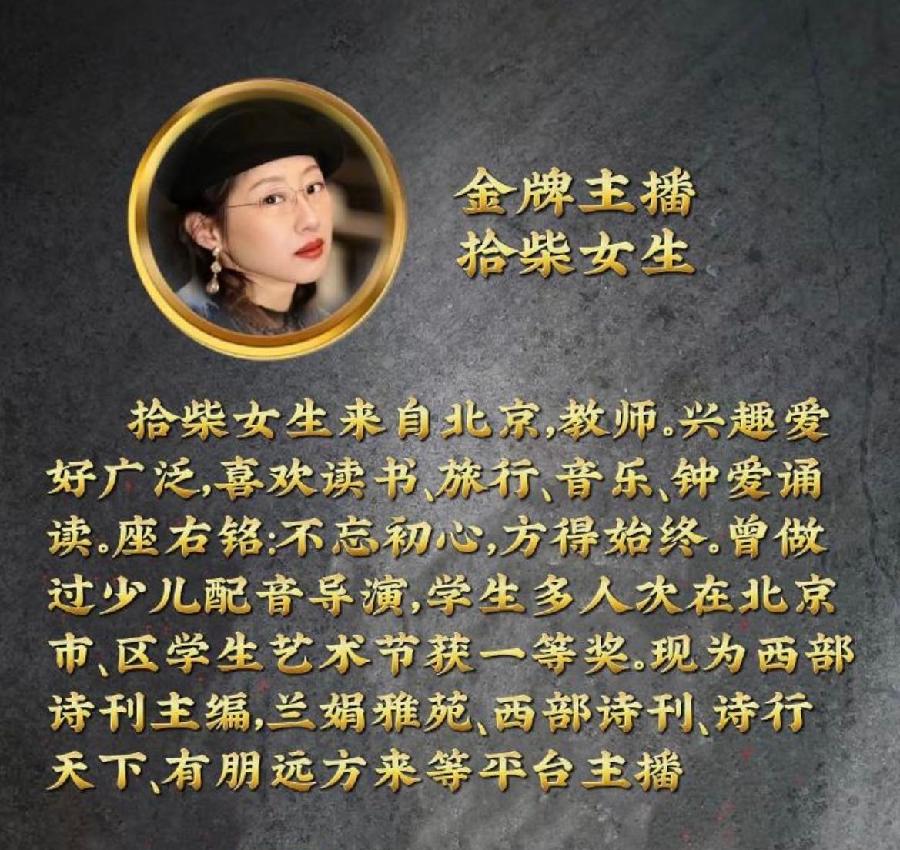 金牌主播
拾柴女生
拾柴女生来自北京,教师。兴趣爱
好广泛,喜欢读书、旅行、音乐、钟爱诵
读。座右铭:不忘初心,方得始终。曾做
过少儿配音导演,学生多人次在北京
市、区学生艺术节获一等奖。现为西部
诗刊主编,兰娟雅苑、西部诗刊、诗行
天下、有朋远方来等平台主播